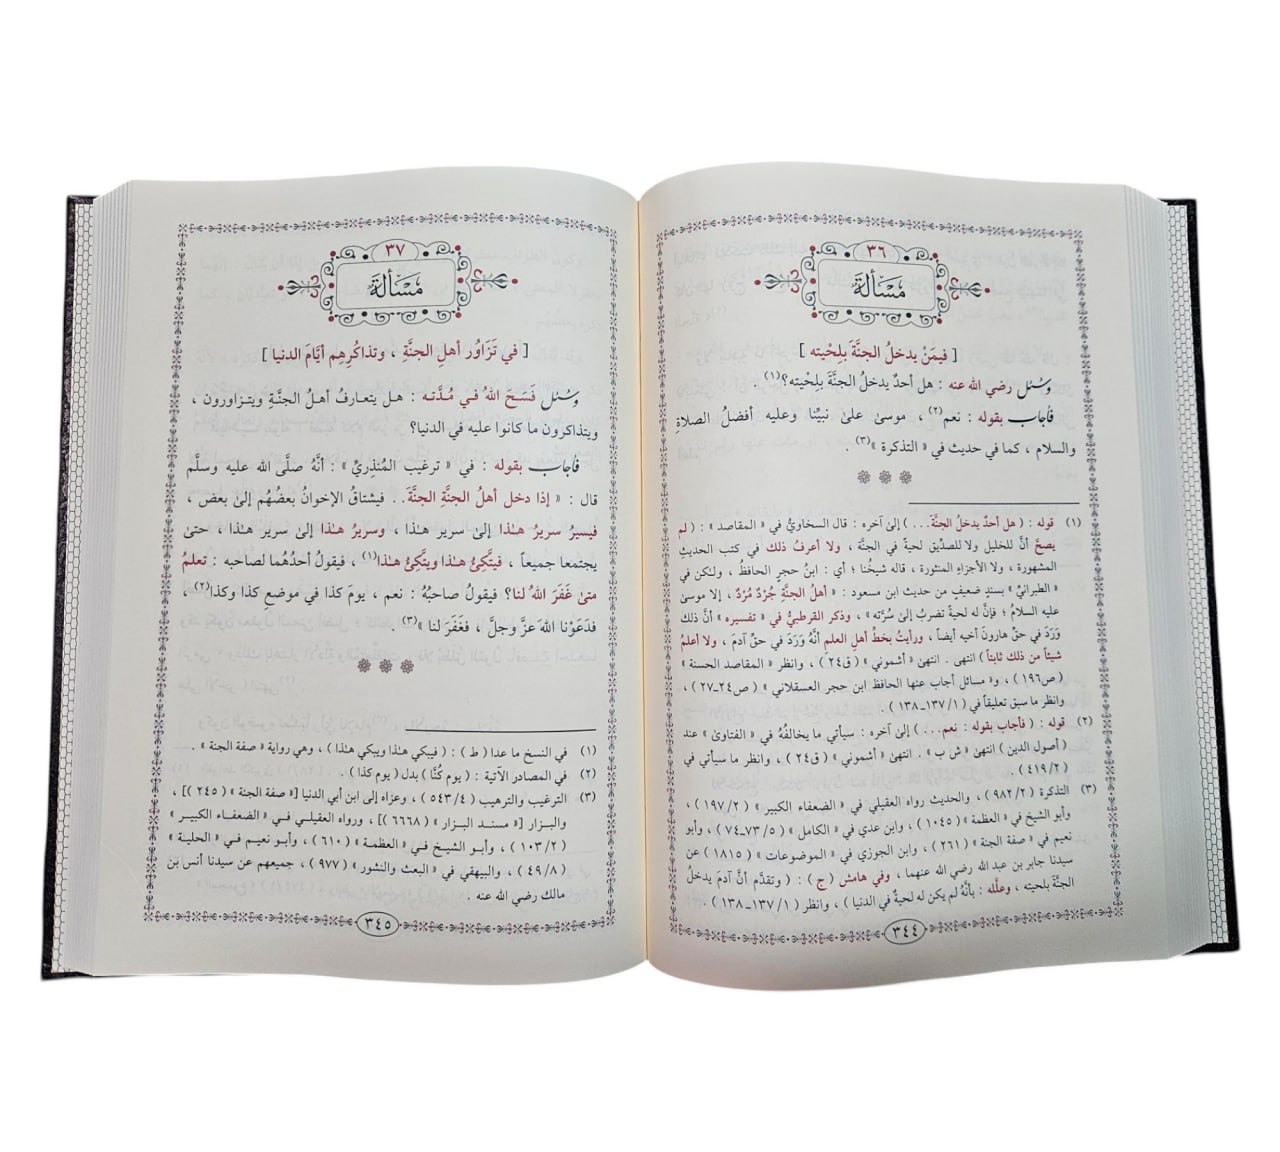 ٣٦
مَسْأَلَة
[ فيمَنْ يدخلُ الجنَّةَ بلِحْيته ]
وسُئل رضي الله عنه : هل أحدٌ يدخلُ الجنَّةَ بلِحْيته؟(١) .
فأجاب بقوله : نعم(٢) ، موسىٰ علىٰ نبيِّنا وعليه أفضلُ الصلاةِ
والسلام ، كما في حديث في « التذكرة »(٣) .
(١) قوله : ( هل أحدٌ يدخلُ الجنَّةَ... ) إلىٰ آخره : قال السخاويُّ في « المقاصد » : ( لم
يصحَّ أنَّ للخليل ولا للصدِّيق لحيةً في الجنَّة ، ولا أعرفُ ذلك في كتب الحديثِ
المشهورة ، ولا الأجزاءِ المنثورة ، قاله شيخُنا ؛ أي : ابنُ حجرٍ الحافظُ ، ولكن في
« الطبرانيِّ » بسندٍ ضعيفٍ من حديث ابن مسعود : « أهلُ الجنَّةِ جُرْدٌ مُرْدٌ ، إلا موسىٰ
عليه السلامُ ؛ فإنَّ له لحيةً تضربُ إلىٰ سُرَّته » ، وذكر القرطبيُّ في « تفسيره » أنَّ ذلك
وَرَدَ في حقِّ هارونَ أخيه أيضاً ، ورأيتُ بخطِّ أهلِ العلم أنَّهُ وَرَدَ في حقِّ آدمَ ، ولا أعلمُ
شيئاً من ذلك ثابتاً ) انتهى . انتهىٰ « أشموني » ( ق٢٤ ) ، وانظر « المقاصد الحسنة »
( ص١٩٦ ) ، و« مسائل أجاب عنها الحافظ ابن حجر العسقلاني » ( ص٢٤-٢٧ ) ،
وانظر ما سبق تعليقاً في ( ١/ ١٣٧-١٣٨ ) .
(٢) قوله : ( فأجاب بقوله : نعم... ) إلىٰ آخره : سيأتي ما يخالفُهُ في « الفتاوىٰ » عند
( أصول الدين ) انتهىٰ « ش ب » . انتهىٰ « أشموني » ( ق٢٤ ) ، وانظر ما سيأتي في
( ٢/ ٤١٩ ) .
(٣) التذكرة ( ٢/ ٩٨٢ ) ، والحديث رواه العقيلي في « الضعفاء الكبير » ( ٢/ ١٩٧ ) ،
وأبو الشيخ في « العظمة » ( ١٠٤٥ ) ، وابن عدي في « الكامل » ( ٥/ ٧٣-٧٤ ) ، وأبو
نعيم في « صفة الجنة » ( ٢٦١ ) ، وابن الجوزي في « الموضوعات » ( ١٨١٥ ) عن
سيدنا جابر بن عبد الله رضي الله عنهما ، وفي هامش ( ج ) : ( وتقدَّم أنَّ آدمَ يدخلُ
الجنَّةَ بلحيته ، وعلَّله : بأنَّهُ لم يكن له لحيةٌ في الدنيا ) ، وانظر ( ١/ ١٣٧-١٣٨ ) .
٣٤٤
٣٧
مَسْأَلَة
[ في تَزَاوُر أهلِ الجنَّةِ ، وتذاكُرِهِم أيَّامَ الدنيا ]
وسُئل فَسَحَ اللهُ فـي مُدَّتـه : هـل يتعـارفُ أهـلُ الجنَّـةِ ويتـزاورون ،
ويتذاكرون ما كانوا عليه في الدنيا؟
فأجاب بقوله : في « ترغيب المُنْذِريِّ » : أنَّهُ صلَّى الله عليه وسلَّم
قال : « إذا دخل أهلُ الجنَّةِ الجنَّةَ.. فيشتاقُ الإخوانُ بعضُهُم إلىٰ بعض ،
فيسيرُ سريرُ هـٰذا إلىٰ سرير هـٰذا ، وسريرُ هـٰذا إلىٰ سرير هـٰذا ، حتىٰ
يجتمعا جميعاً ، فيتَّكِئُ هـٰذا ويتَّكِئُ هـٰذا(١) ، فيقولُ أحدُهُما لصاحبه : تعلمُ
متىٰ غَفَرَ اللهُ لنا؟ فيقولُ صاحبُهُ : نعم ، يومَ كذا في موضعِ كذا وكذا(٢) ،
فدَعَوْنا اللهَ عزَّ وجلَّ ، فغَفَرَ لنا »(٣) .
(١) في النسخ ما عدا ( ط ) : ( فيبكي هـٰذا ويبكي هـٰذا ) ، وهي رواية « صفة الجنة » .
(٢) في المصادر الآتية : ( يوم كُنَّا ) بدل ( يوم كذا ) .
(٣) الترغيب والترهيب ( ٤/ ٥٤٣ ) ، وعزاه إلى ابن أبي الدنيا [« صفة الجنة » ( ٢٤٥ )] ،
والبـزار [« مسنـد البـزار » ( ٦٦٦٨ )] ، ورواه العقيلـي فـي « الضعـفاء الكبيـر »
( ٢/ ١٠٣ ) ، وأبـو الشيـخ فـي « العظمـة » ( ٦١٠ ) ، وأبـو نعيـم فـي « الحليـة »
( ٨/ ٤٩ ) ، والبيهقي في « البعث والنشور » ( ٩٧٧ ) ، جميعهم عن سيدنا أنس بن
مالك رضي الله عنه .
٣٤٥